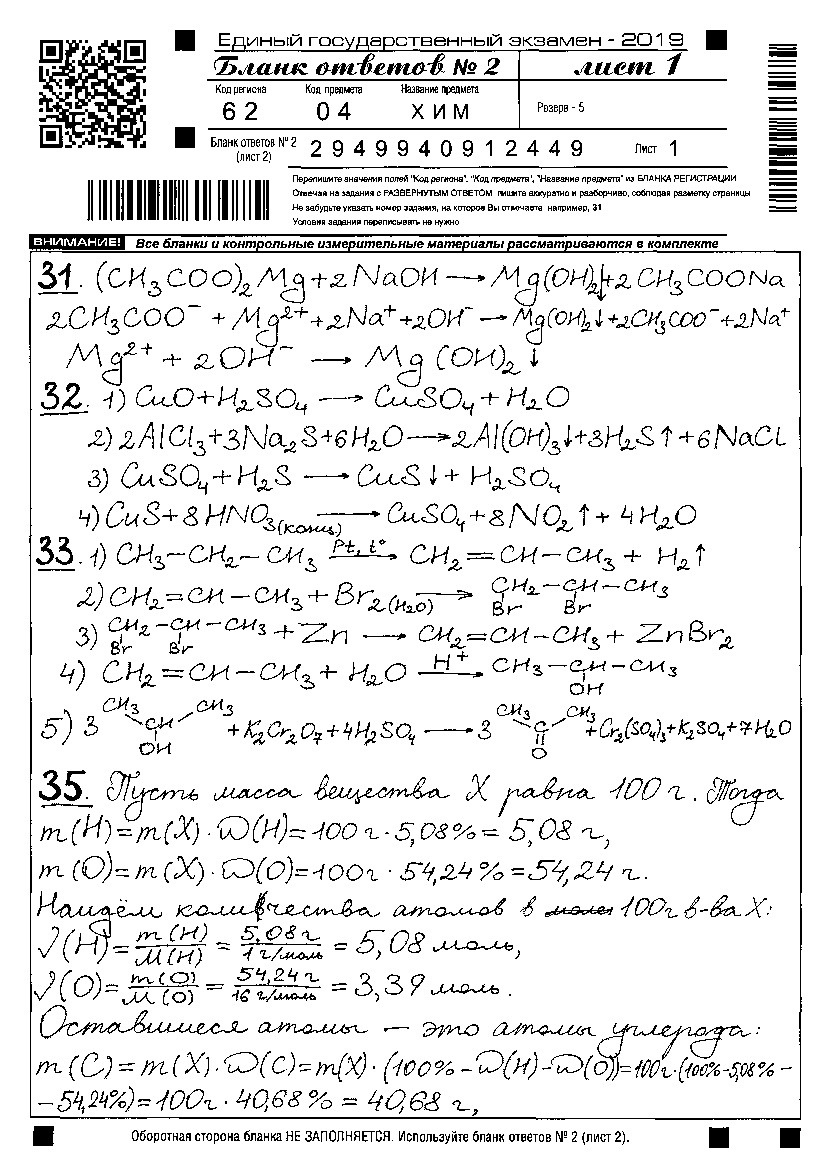 Единый государственный экзамен - 2019
Бланк ответов № 2 лист 1
Код региона Код предмета Название предмета
62 04 ХИМ Резерв - 5
Бланк ответов № 2 (лист 2) 2949940912449 Лист 1
Перепишите значения полей "Код региона", "Код предмета", "Название предмета" из БЛАНКА РЕГИСТРАЦИИ
Отвечая на задания с РАЗВЕРНУТЫМ ОТВЕТОМ пишите аккуратно и разборчиво, соблюдая разметку страницы
Не забудьте указать номер задания, на которое Вы отвечаете например, 31
Условия задания переписывать не нужно
ВНИМАНИЕ! Все бланки и контрольные измерительные материалы рассматриваются в комплекте
31. (CH₃COO)₂Mg+2NaOH → Mg(OH)₂↓+2CH₃COONa
2CH₃COO⁻ + Mg²⁺+2Na⁺+2OH⁻ → Mg(OH)₂↓+2CH₃COO⁻+2Na⁺
Mg²⁺ + 2OH⁻ → Mg(OH)₂↓
32. 1) CuO+H₂SO₄ → CuSO₄+H₂O
2) 2AlCl₃+3Na₂S+6H₂O → 2Al(OH)₃↓+3H₂S↑+6NaCl
3) CuSO₄+H₂S → CuS↓+H₂SO₄
4) CuS+8HNO₃(конц) → CuSO₄+8NO₂↑+4H₂O
33. 1) CH₃-CH₂-CH₃ Pt, t° → CH₂=CH-CH₃ + H₂↑
2) CH₂=CH-CH₃+Br₂(H₂O) → CH₂-CH-CH₃
Br Br
3) CH₂-CH-CH₃+Zn → CH₂=CH-CH₃+ZnBr₂
Br Br
4) CH₂=CH-CH₃+H₂O H⁺ → CH₃-CH-CH₃
OH
CH₃ CH₃ CH₃ CH₃
5) 3 CH +K₂Cr₂O₇+4H₂SO₄ → 3 C +Cr₂(SO₄)₃+K₂SO₄+7H₂O
OH O
35. Пусть масса вещества X равна 100 г. Тогда
m(H)=m(X)·ω(H)=100 г·5,08%=5,08 г,
m(O)=m(X)·ω(O)=100г·54,24%=54,24 г.
Найдём количества атомов в молек 100г в-ва X:
ν(H)=m(H)/M(H)=5,08г/1г/моль=5,08 моль,
ν(O)=m(O)/M(O)=54,24 г/16 г/моль=3,39 моль.
Оставшиеся атомы – это атомы углерода:
m(C)=m(X)·ω(C)=m(X)·(100%-ω(H)-ω(O))=100г·(100%-5,08%-
-54,24%)=100г·40,68%=40,68 г,
Оборотная сторона бланка НЕ ЗАПОЛНЯЕТСЯ. Используйте бланк ответов № 2 (лист 2).